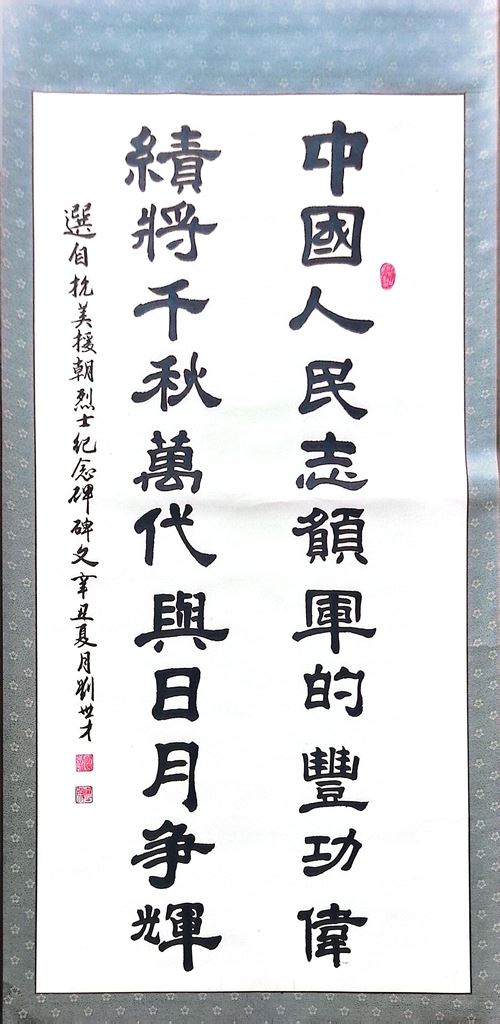 中國人民志願軍的豐功偉
績將千秋萬代與日月爭輝
選自抗美援朝烈士纪念碑碑文辛丑夏月劉世才